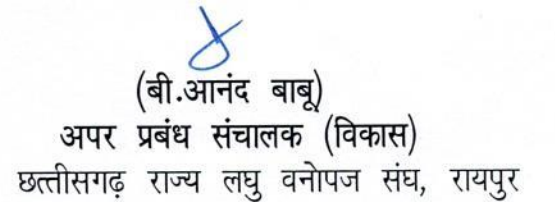 (बी.आनंद बाबू)
अपर प्रबंध संचालक (विकास)
छत्तीसगढ़ राज्य लघु वनोपज संघ, रायपुर